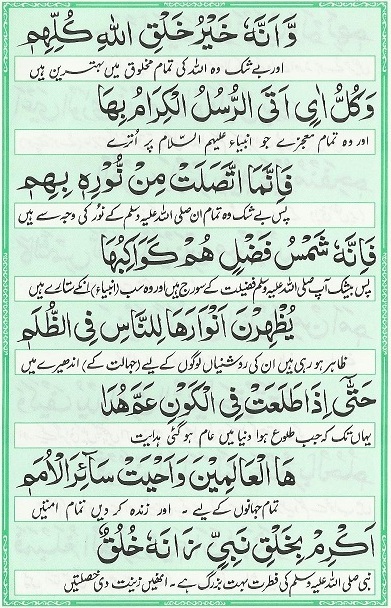 وَّاَنَّهٗ خَيْرُ خَلْقِ اللهِ كُلِّهِمٖ
اور بے شک وہ اللہ کی تمام مخلوق میں بہترین ہیں
وَكُلُّ اٰيٍ اَتَى الرُّسُلُ الْكِرَامُ بِهَا
اور وہ تمام معجزے جو انبیاء علیہم السّلام پر اُترے
فَاِنَّمَا اتَّصَلَتْ مِنْ نُّوْرِهٖ بِهِمٖ
پس بے شک وہ تمام ان صلی اللہ علیہ وسلم کے نُور کی وجہ سے ہیں
فَاِنَّهٗ شَمْسُ فَضْلٍ هُمْ كَوَاكِبُهَا
پس بیشک آپ صلی اللہ علیہ وسلم فضیلت کے سورج ہیں اور وہ سب (انبیاءؑ) انکے ستارے ہیں
يُظْهِرْنَ اَنْوَارَهَا لِلنَّاسِ فِي الظُّلَمٖ
ظاہر ہو رہی ہیں ان کی روشنیاں لوگوں کے لیے (جہالت کے) اندھیرے میں
حَتّٰى اِذَا طَلَعَتْ فِي الْكَوْنِ عَمَّ هُدَا
یہاں تک کہ جب طلوع ہوا دنیا میں عام ہو گئی ہدایت
هَا الْعَالَمِيْنَ وَاَحْيَتْ سَآئِرَ الْاُمَمٖ
تمام جہانوں کے لیے ۔ اور زندہ کر دیں تمام امتیں
اَكْرِمْ بِخَلْقِ نَبِيٍّ زَانَهٗ خُلُقٌ
نبی صلی اللہ علیہ وسلم کی فطرت بہت بزرگ ہے ۔ انھیں زینت دی خصلتیں